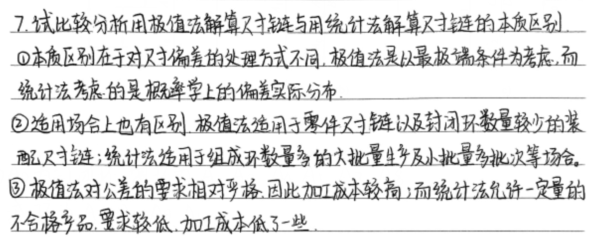 7.试比较分析用极值法解算尺寸链与用统计法解算尺寸链的本质区别.
①本质区别在于对尺寸偏差的处理方式不同,极值法是以最极端条件为考虑,而
统计法考虑的是概率学上的偏差实际分布.
②适用场合上也有区别.极值法适用于零件尺寸链以及封闭环数量较少的装
配尺寸链;统计法适用于组成环数量多的大批量生产及小批量多批次等场合。
③极值法对公差的要求相对严格,因此加工成本较高;而统计法允许一定量的
不合格产品,要求较低.加工成本低了一些.